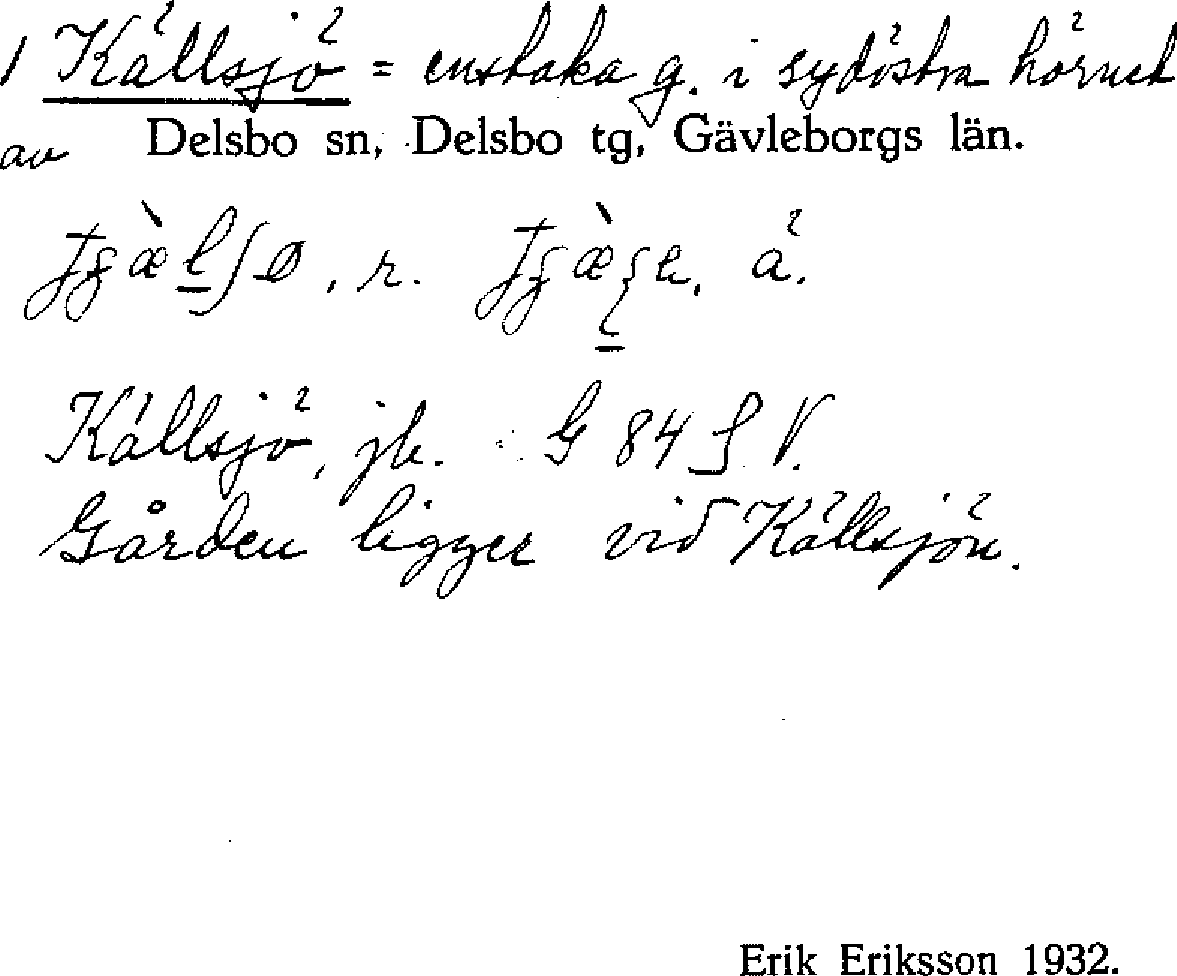 1 Källsjö = enstaka g. i sydöstra hörnet
av Delsbo sn, Delsbo tg, Gävleborgs län.
r. ä.
Källsjö, jb. : G 84 S V.
Gården ligger vid Källsjön.
Erik Eriksson 1932.